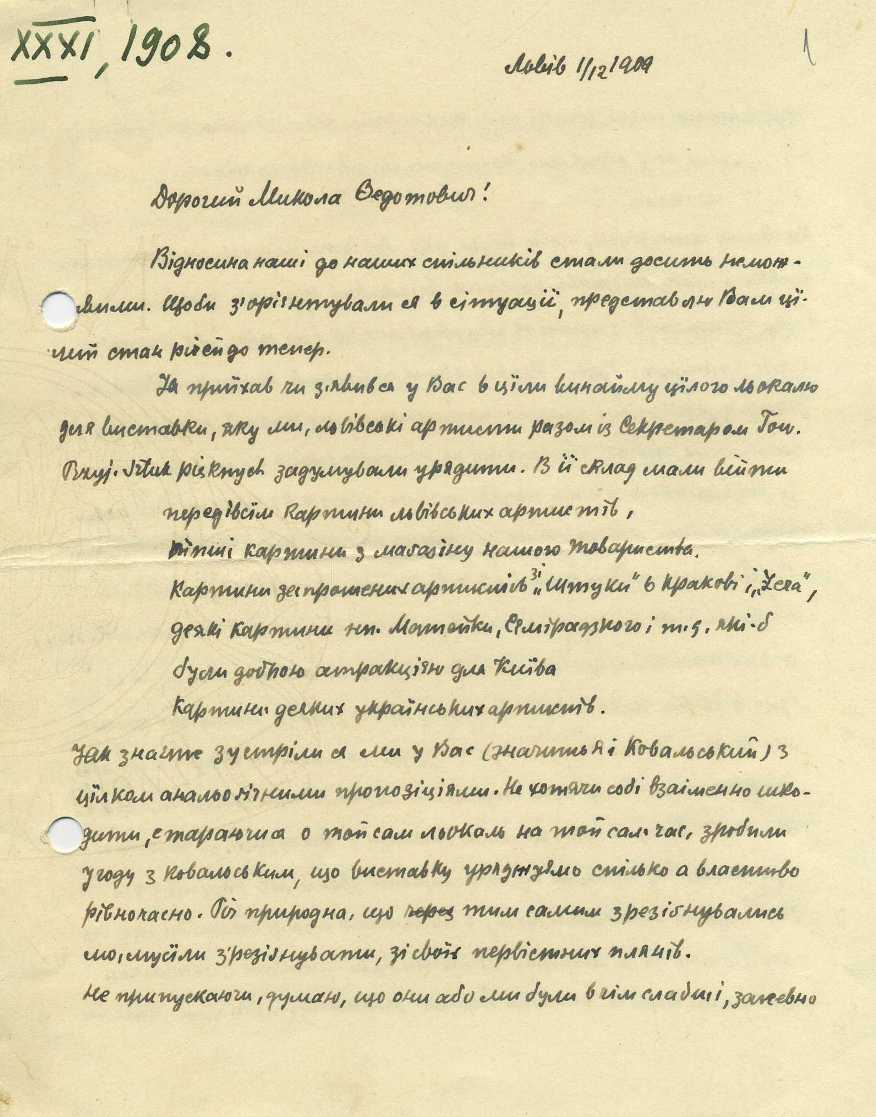 XXXI, 1908.
1
Львів 1/12 1909
Дорогий Микола Федотович!
Відносина наші до наших спільників стали досить немож-
ливими. Щоби з'орієнтувалися в ситуації, представлю Вам ці-
лий стан річей до тепер.
Я приїхав чи зявився у Вас в ціли винайму цілого льокалю
для виставки, яку ми, львівські артисти разом із Секретаром Тов.
Przyj. Sztuk pięknych задумували урядити. В її склад мали війти
передівсім картини львівських артистів,
ліпші картини з магазіну нашого товариства.
Картини запрошених артистів зі „Штуки" в Кракові і „Zera",
деякі картини нп. Матейки, Семірадзкого і т.д. які-б
були доброю атракцією для Київа
Картини деяких українських артистів.
Як знаєте зустрілися ми у Вас (значить я і Ковальський) з
цілком анальогічними пропозіціями. Не хотячи собі взаїменно шко-
дити, стараючися о той сам льокаль на той сам час, зробили
угоду з Ковальським, що виставку уряджуємо спілько а властиво
рівночасно. Річ природна, що через тим самим зрезігнувались
мо, мусіли зрезігнувати, зі своїх первістних плянів.
Не припускаючи, думаю, що они або ми були в чім слабші, заневно